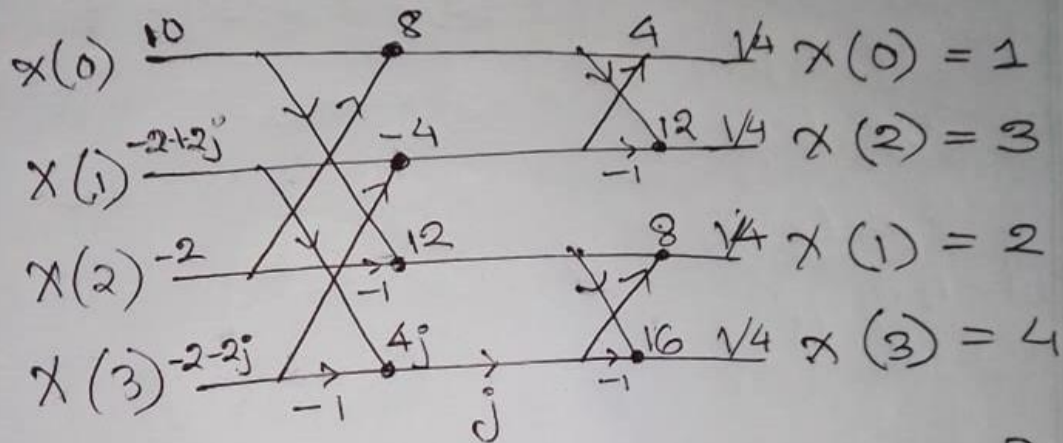 x(0) 10 8 4 1/4 x(0) = 1
X(1) -2+2j -4 12 1/4 x(2) = 3
-1
X(2) -2 12 8 1/4 x(1) = 2
-1
X(3) -2-2j 4j 16 1/4 x(3) = 4
-1 j -1